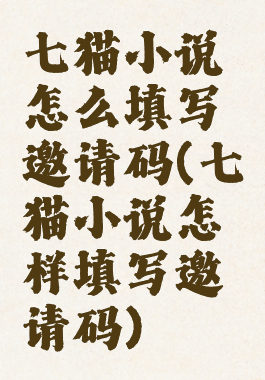 七猫小说
怎么填写
邀请码(七
猫小说怎
样填写邀
请码)